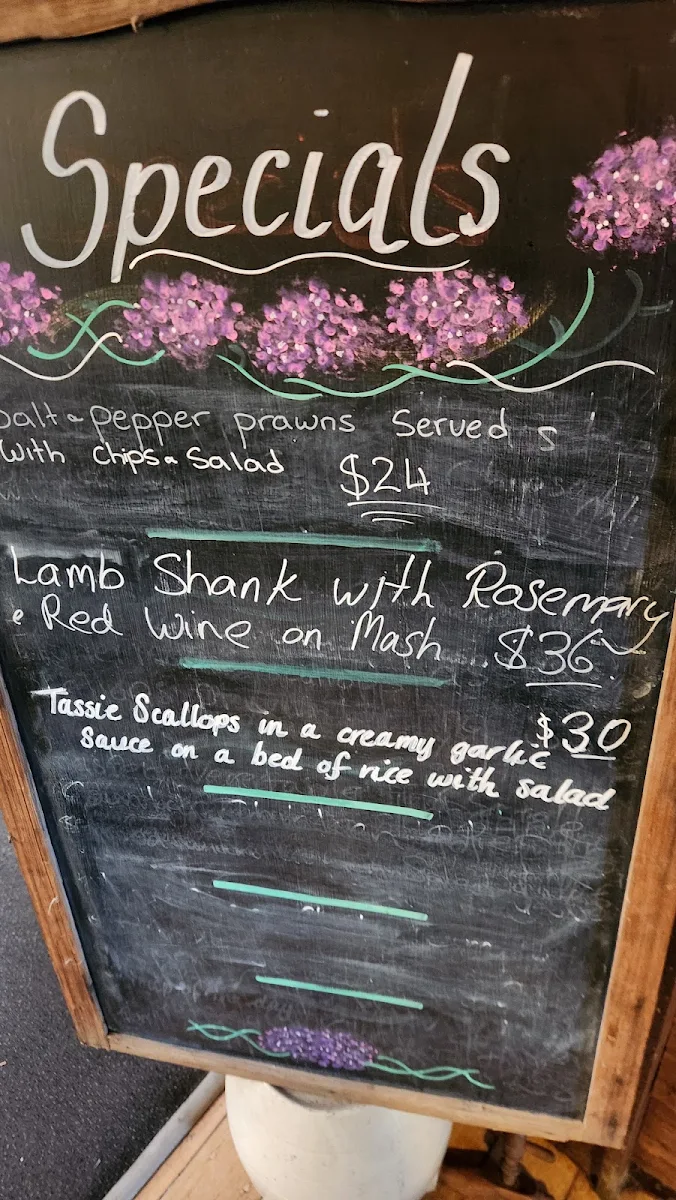 Specials
Salt & pepper prawns Served
with chips & Salad $24
Lamb Shank with Rosemary
& Red Wine on Mash $36
Tassie Scallops in a creamy garlic $30
Sauce on a bed of rice with salad